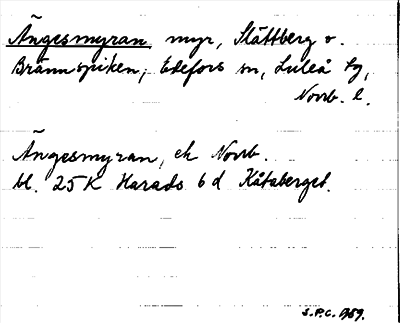 Ängesmyran, myr, Slåttberg o.
Brännspiken, Edefors sn, Luleå tg,
Norrb. l.
Ängesmyran, ek Norrb.
bl. 25 K Harads 6 d Kåtaberget.
S.P.C. 1959.